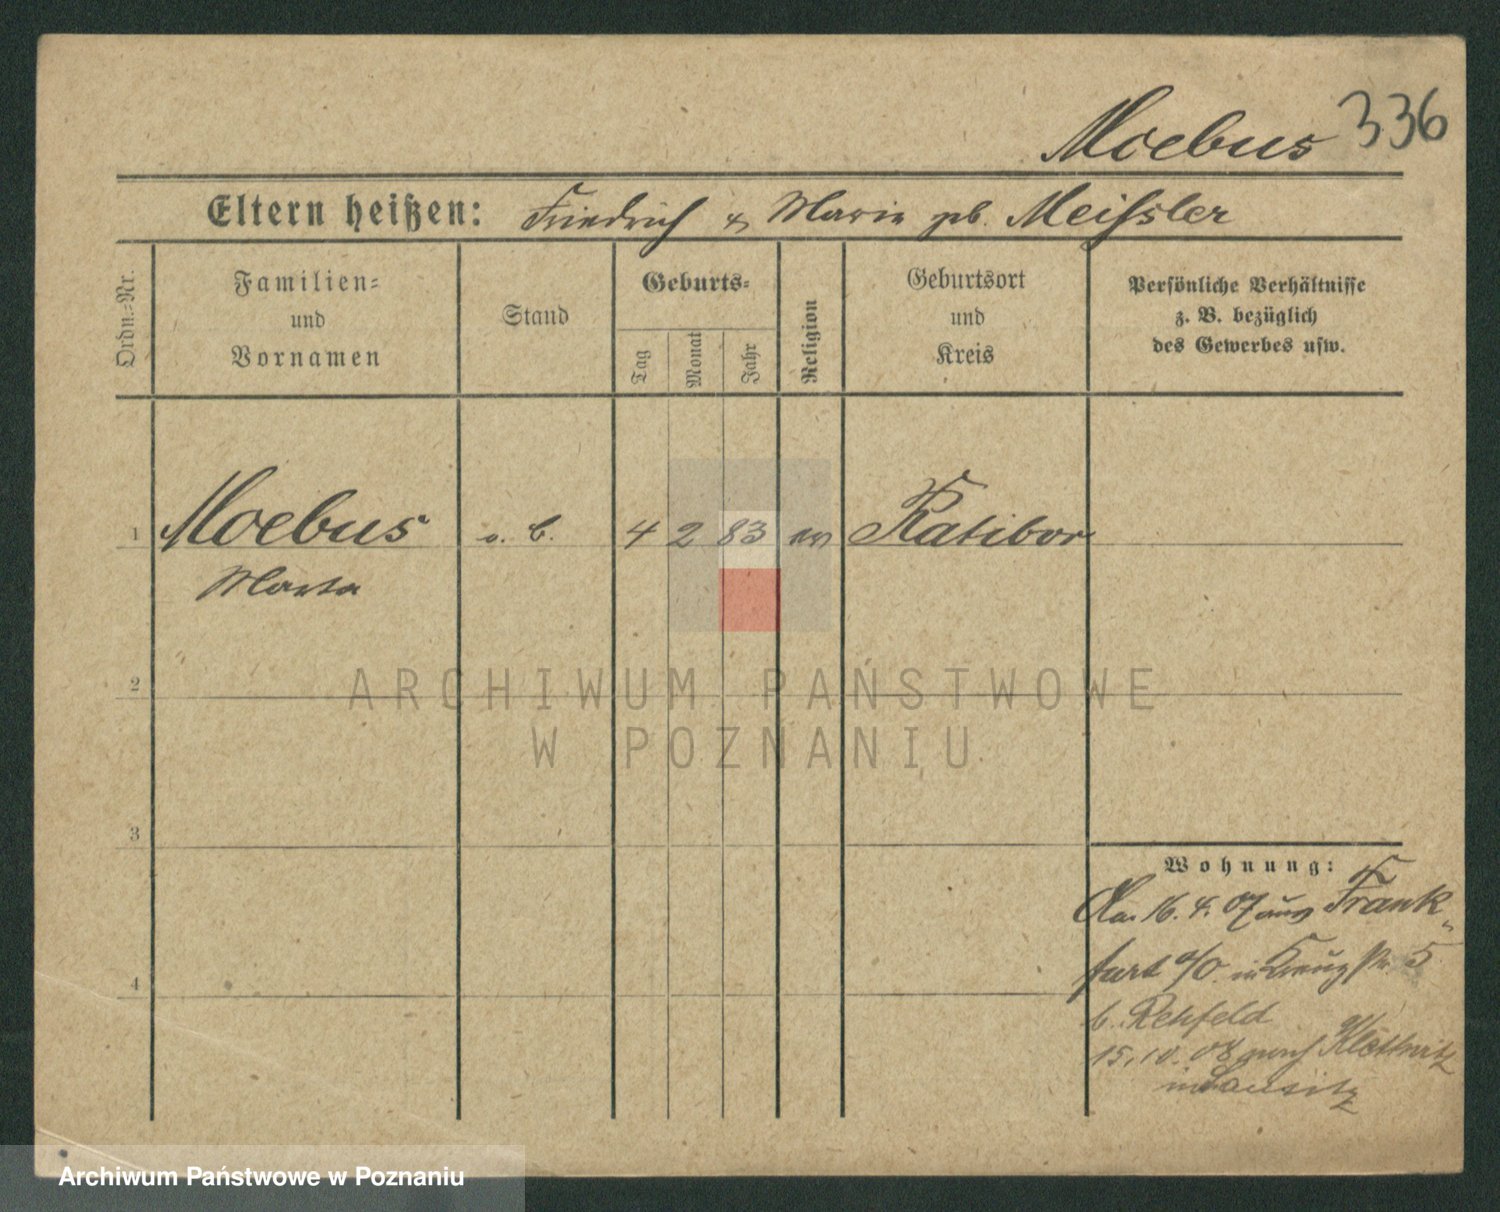 Moebus 336
Eltern heißen: Friedrich & Marie geb. Meissler
Ordn.=Nr.
Familien=
und
Vornamen
Stand
Geburts=
Tag
Monat
Jahr
Religion
Geburtsort
und
Kreis
Persönliche Verhältnisse
z. B. bezüglich
des Gewerbes usw.
1 Moebus o. b. 4 2 83 ev Ratibor
Marta
2
3
4
Wohnung:
Am 16. 4. 07 aus Frank-
furt a/O. in Kreuz str 5
b. Rehfeld
15. 10. 08 nach
in Lausitz
ARCHIWUM PAŃSTWOWE
W POZNANIU
Archiwum Państwowe w Poznaniu